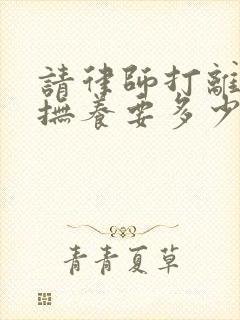 請律師打離
撫養要多少
青青夏草